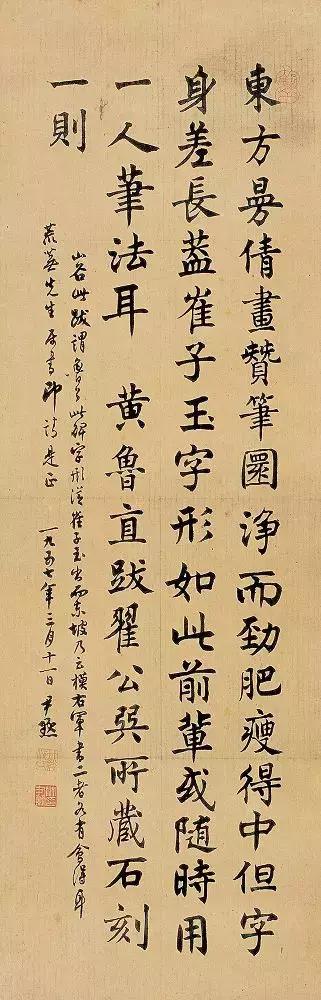 東方曼倩畫贊筆圓淨而勁肥瘦得中但字
身差長蓋崔子玉字形如此前輩或隨時用
一人筆法耳 黃魯直跋翟公巽所藏石刻
一則
山谷此跋謂魯公此碑字形從崔子玉出而東坡乃云模右軍書二者各有會得耳
荒蕪先生屬書即請是正 一九五七年三月十一日 尹默